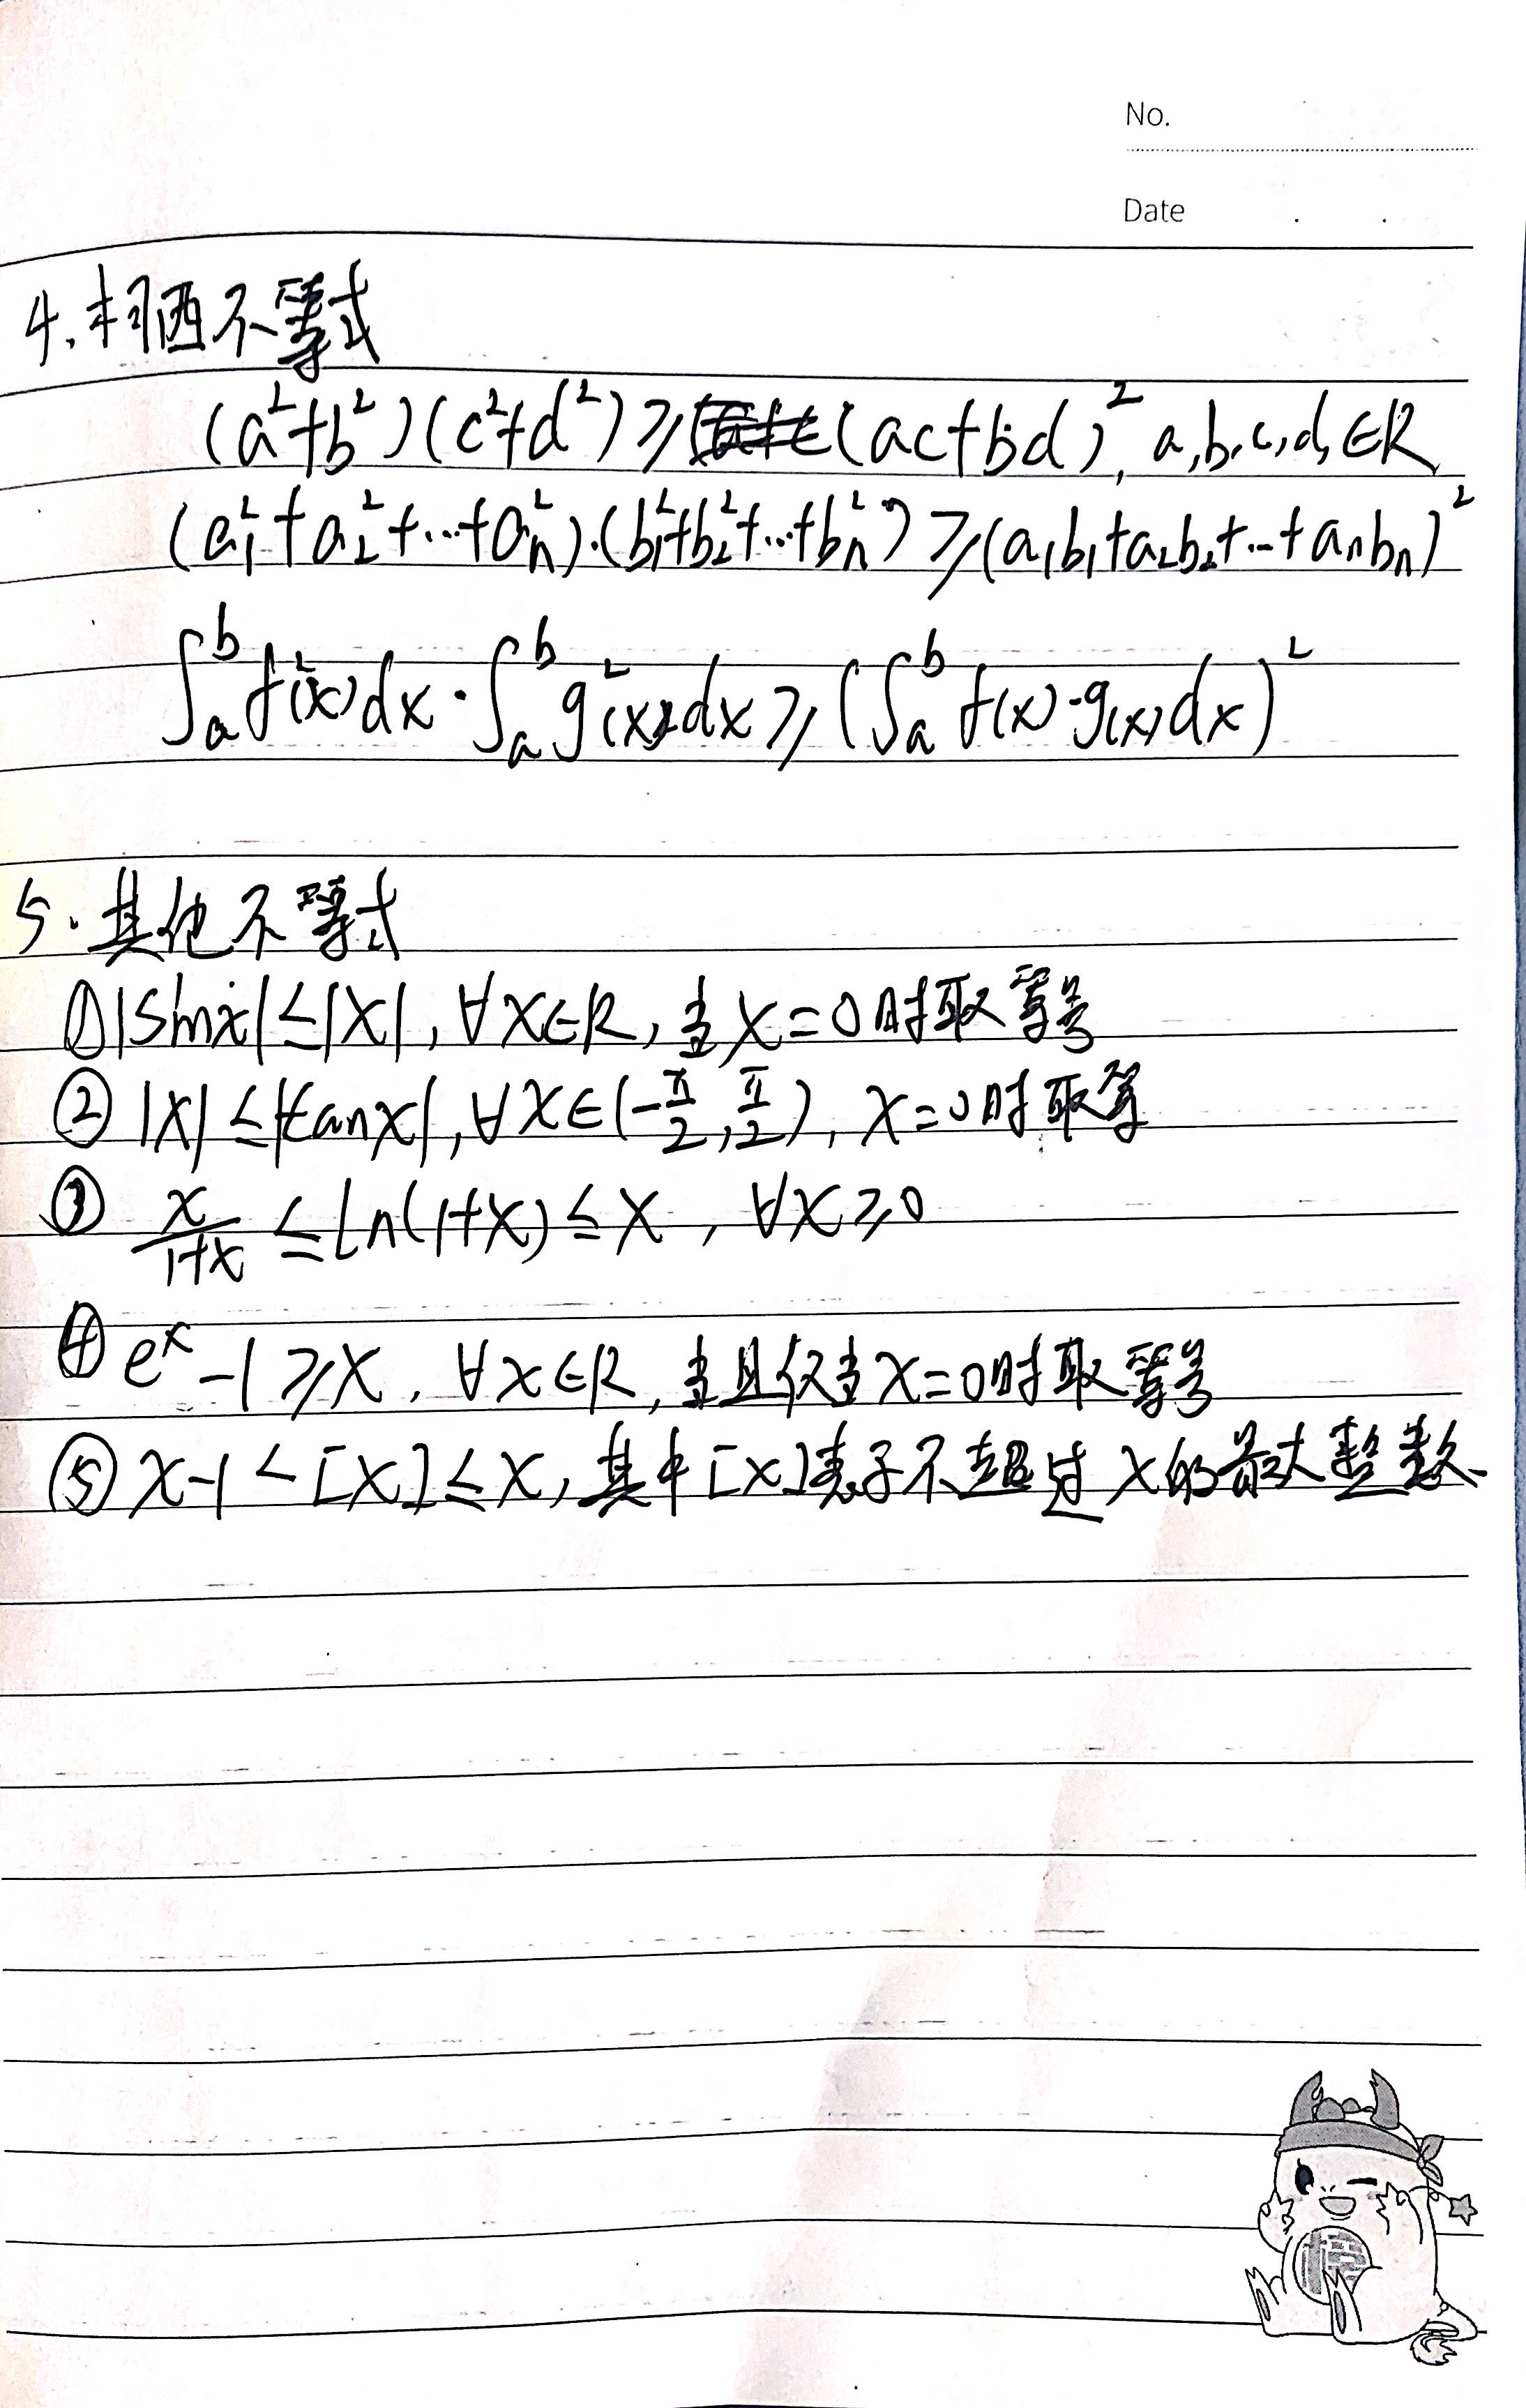 No.
Date
4. 柯西不等式
(a²+b²)(c²+d²)≥(ac+bd)², a,b,c,d,∈R
(a₁²+a₂²+…+aₙ²)·(b₁²+b₂²+…+bₙ²)≥(a₁b₁+a₂b₂+…+aₙbₙ)²
∫ₐᵇf²(x)dx·∫ₐᵇg²(x)dx≥(∫ₐᵇf(x)·g(x)dx)²
5. 其他不等式
①|sinx|≤|x|, ∀x∈R, 当x=0时取等号
②|x|≤|tanx|, ∀x∈(-π/2, π/2), x=0时取等
③ x/(1+x) ≤ln(1+x)≤x, ∀x≥0
④eˣ-1≥x, ∀x∈R, 当且仅当x=0时取等号
⑤x-1<[x]≤x, 其中[x]表示不超过x的最大整数